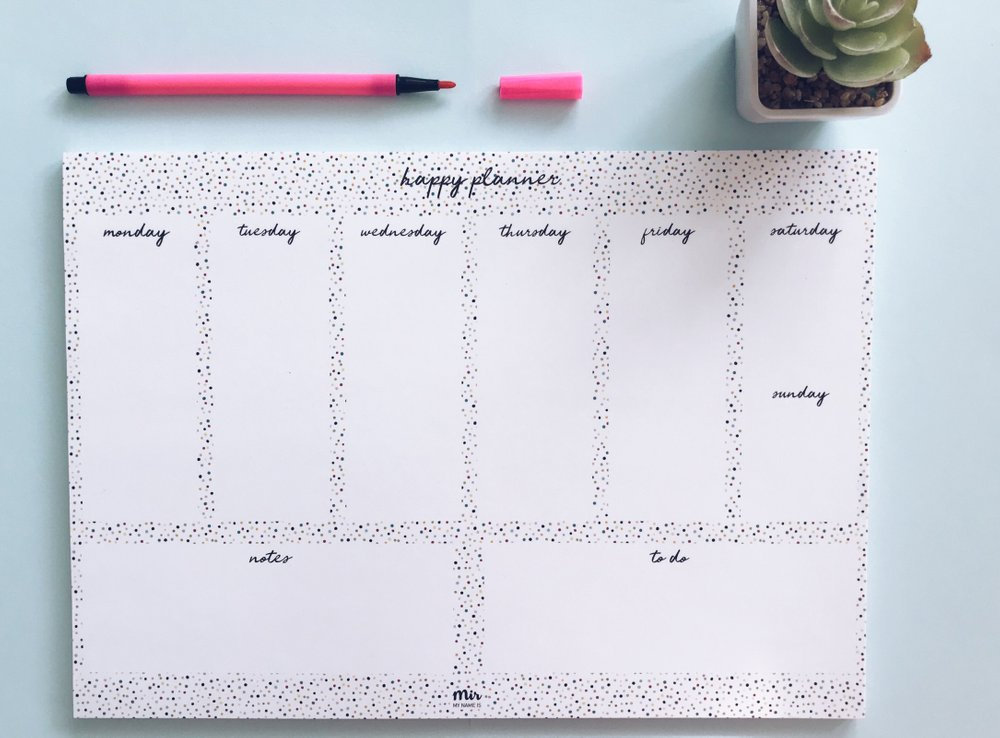 happy planner
monday tuesday wednesday thursday friday saturday
sunday
notes to do
mir
MY NAME IS